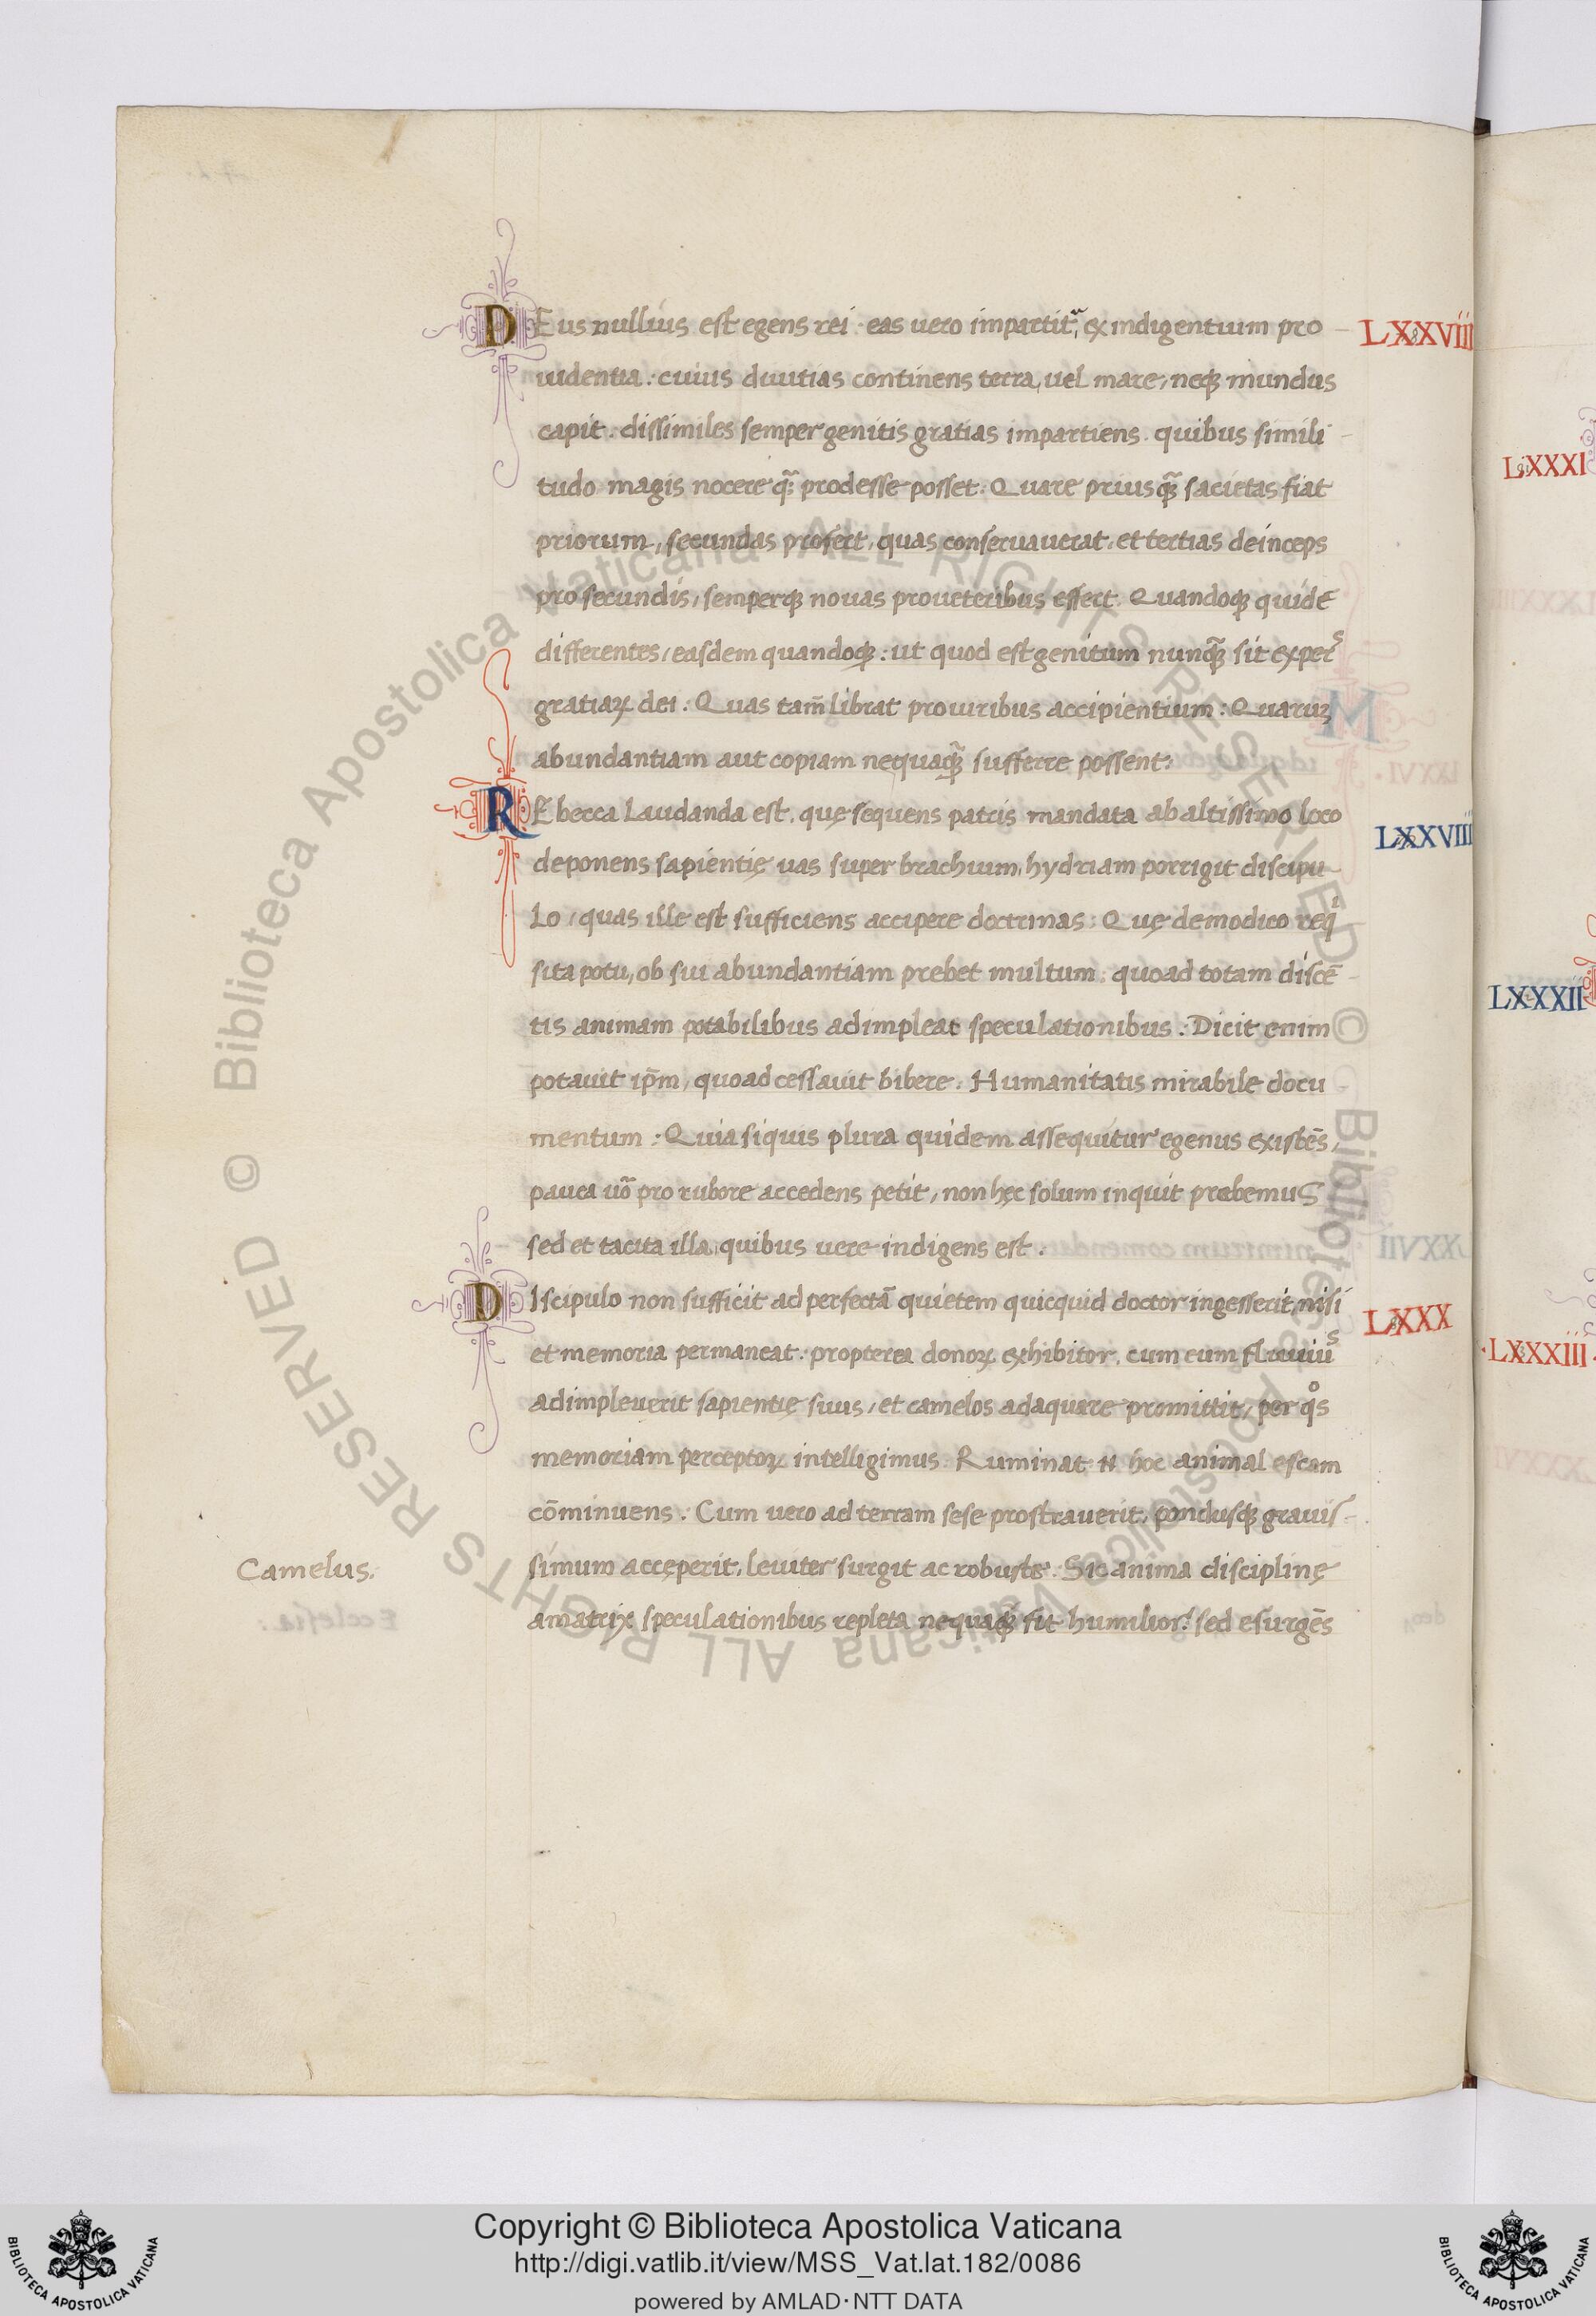 DEus nullius est egens rei. eas uero impartit᷑, ex indigentium pro- LXXVIII
uidentia: cuius diuitias continens terra, uel mare, neqꝫ mundus
capit: dissimiles semper genitis gratias impartiens. quibus simili-
tudo magis nocere q̃ꝫ prodesse posset: Quare priusq̃ꝫ sacietas fiat
priorum, secundas profert, quas conseruauerat, et tertias deinceps
pro secundis, semperqꝫ nouas
differentes, easdem quandoqꝫ: ut quod est genitum nunq̃ꝫ sit expers
gratiaꝝ dei: Quas tam̃ librat pro uiribus accipientium: Quaruꝫ
abundantiam aut copiam nequaq̃ꝫ sufferre possent:
REbecca Laudanda est, quę sequens patris mandata ab altissimo loco LXXVIIII
deponens sapientię uas super brachium, hydriam porrigit discipu-
Lo, quas ille est sufficiens accipere doctrinas: Quę de modico reqi
sita potu, ob sui abundantiam prebet multum: quoad totam discē-
tis animam potabilibus adimpleat speculationibus: Dicit enim
potauit ip̄m, quoad cessauit bibere. Humanitatis mirabile docu-
mentum: Quia siquis plura quidem assequitur egenus existēs,
pauca uo᷑ pro rubore accedens petit, non hęc solum inquit prebemus
sed et tacita illa quibus uere indigens est.
DIscipulo non sufficit ad perfectā quietem quicquid doctor ingesserit, nisi LXXX
et memoria permaneat: propterea donoꝝ exhibitor, cum eum fluuius
adimpleuerit sapientię suus, et camelos adaquare promittit, per qos
memoriam perceptoꝝ intelligimus. Ruminat n̄ hoc animal escam
cōminuens: Cum uero ad terram sese prostrauerit, pondusqꝫ grauis-
simum acceperit, leuiter surgit ac robuste. Sic anima disciplinę
amatrix speculationibus repleta nequaq̃ꝫ fit humilior: sed esurgēs
Camelus.
LXXXI
LXXXII
·LXXXIII·
© Biblioteca Apostolica Vaticana ALL RIGHTS RESERVED © Biblioteca Apostolica Vaticana ALL RIGHTS RESERVED
Copyright © Biblioteca Apostolica Vaticana
http://digi.vatlib.it/view/MSS_Vat.lat.182/0086
powered by AMLAD·NTT DATA
BIBLIOTECA APOSTOLICA VATICANA
BIBLIOTECA APOSTOLICA VATICANA